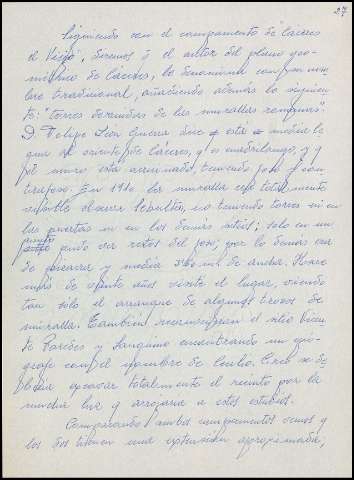 27
Siguiendo con el campamento de "Cáceres
el Viejo", diremos q el autor del plano geo-
métrico de Cáceres, lo denomina con su nom-
bre tradicional, añadiendo además lo siguien-
te: "torres derruidas de las murallas romanas".
D. Felipe León Guerra dice q está a media le
gua al oriente de Cáceres, q es cuadrilongo, y q
el muro está arruinado, teniendo foso y con
trafoso. En 1910 la muralla era totalmente
visible aunque sepultos, no teniendo torres ni en
las puertas ni en los demás sitios; solo en un
punto pudo ver restos del foso; por lo demás era
de pizarra y medía 3'80 m. de ancha. Hace
más de veinte años visité el lugar, viendo
tan solo el arranque de algunos trozos de
muralla. También reconocieron el sitio Viu
de Paredes y Sanguino encontrando un epí-
grafe con el nombre de Coulio. Creo se de-
biera excavar totalmente el recinto por la
mucha luz q arrojaría a estos estudios.
Comparando ambos campamentos vemos q
los dos tienen una extensión aproximada,